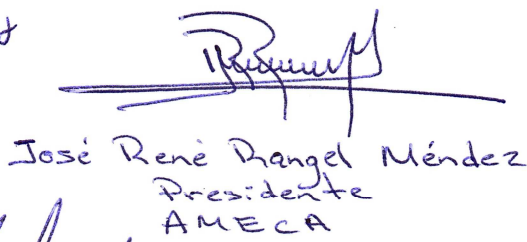 José René Rangel Méndez
Presidente
AMECA